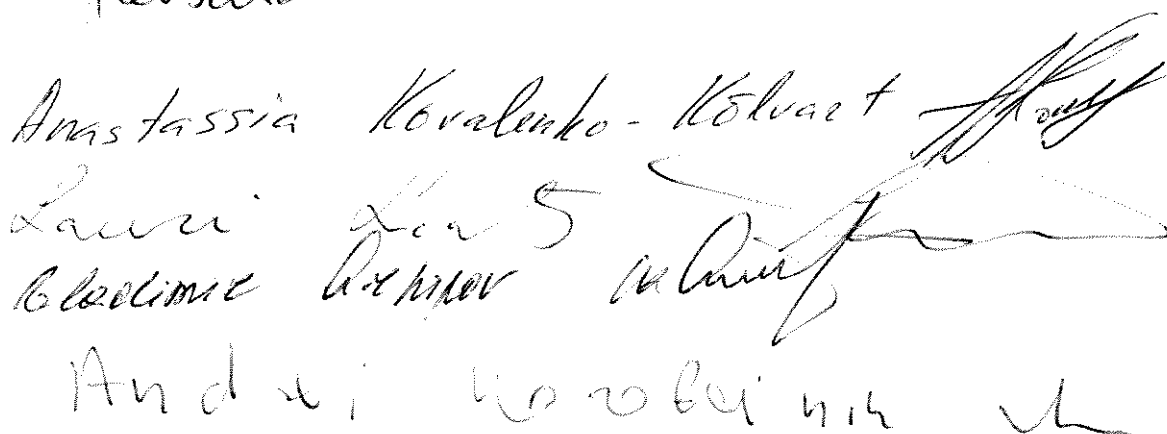 Anastassia Kovalenko-Kõlvart
Lauri Laats
Vladimir Arhipov
Andrei Korobeinik